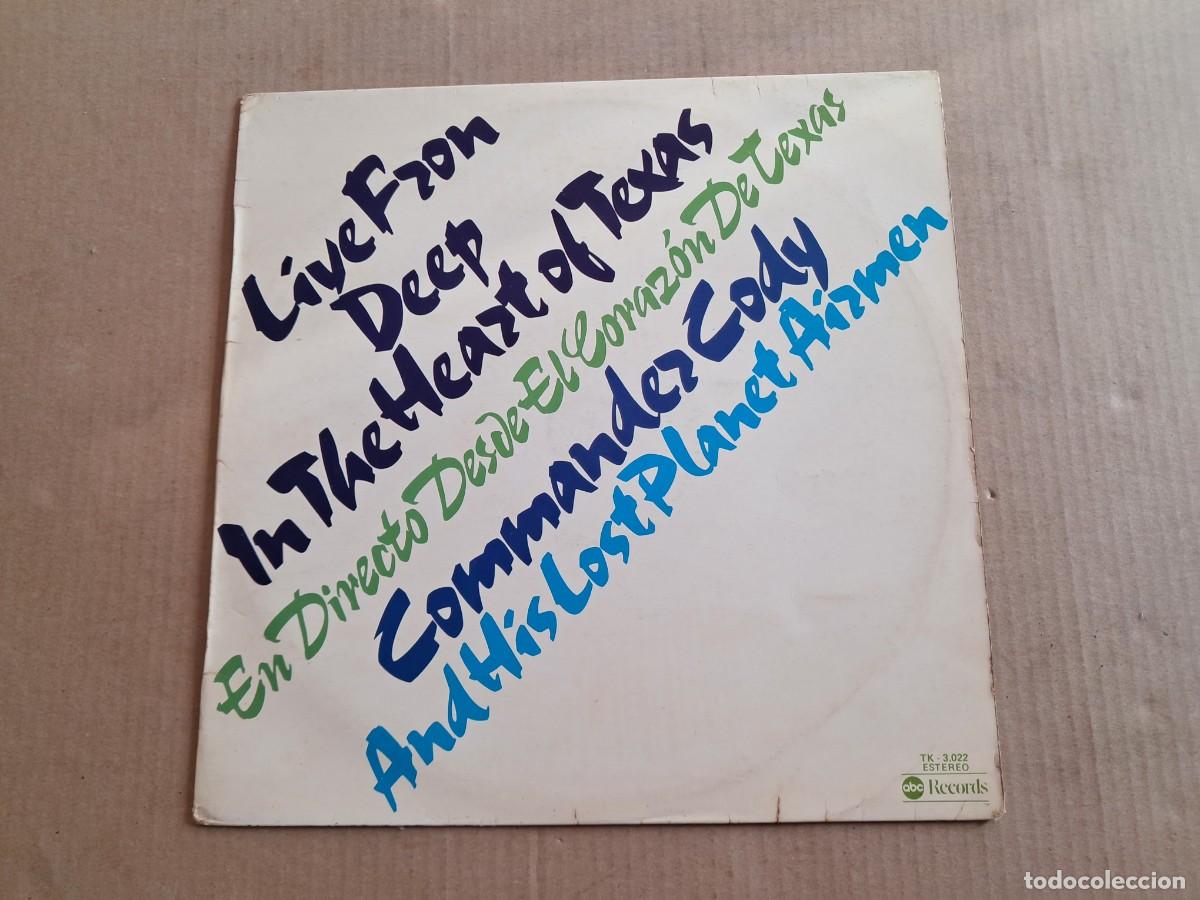 Live Fron
Deep
In The Heart of Texas
En Directo Desde El Corazón De Texas
Commander Cody
And His Lost Planet Airmen
TK - 3.022
ESTEREO
abc Records
todocoleccion